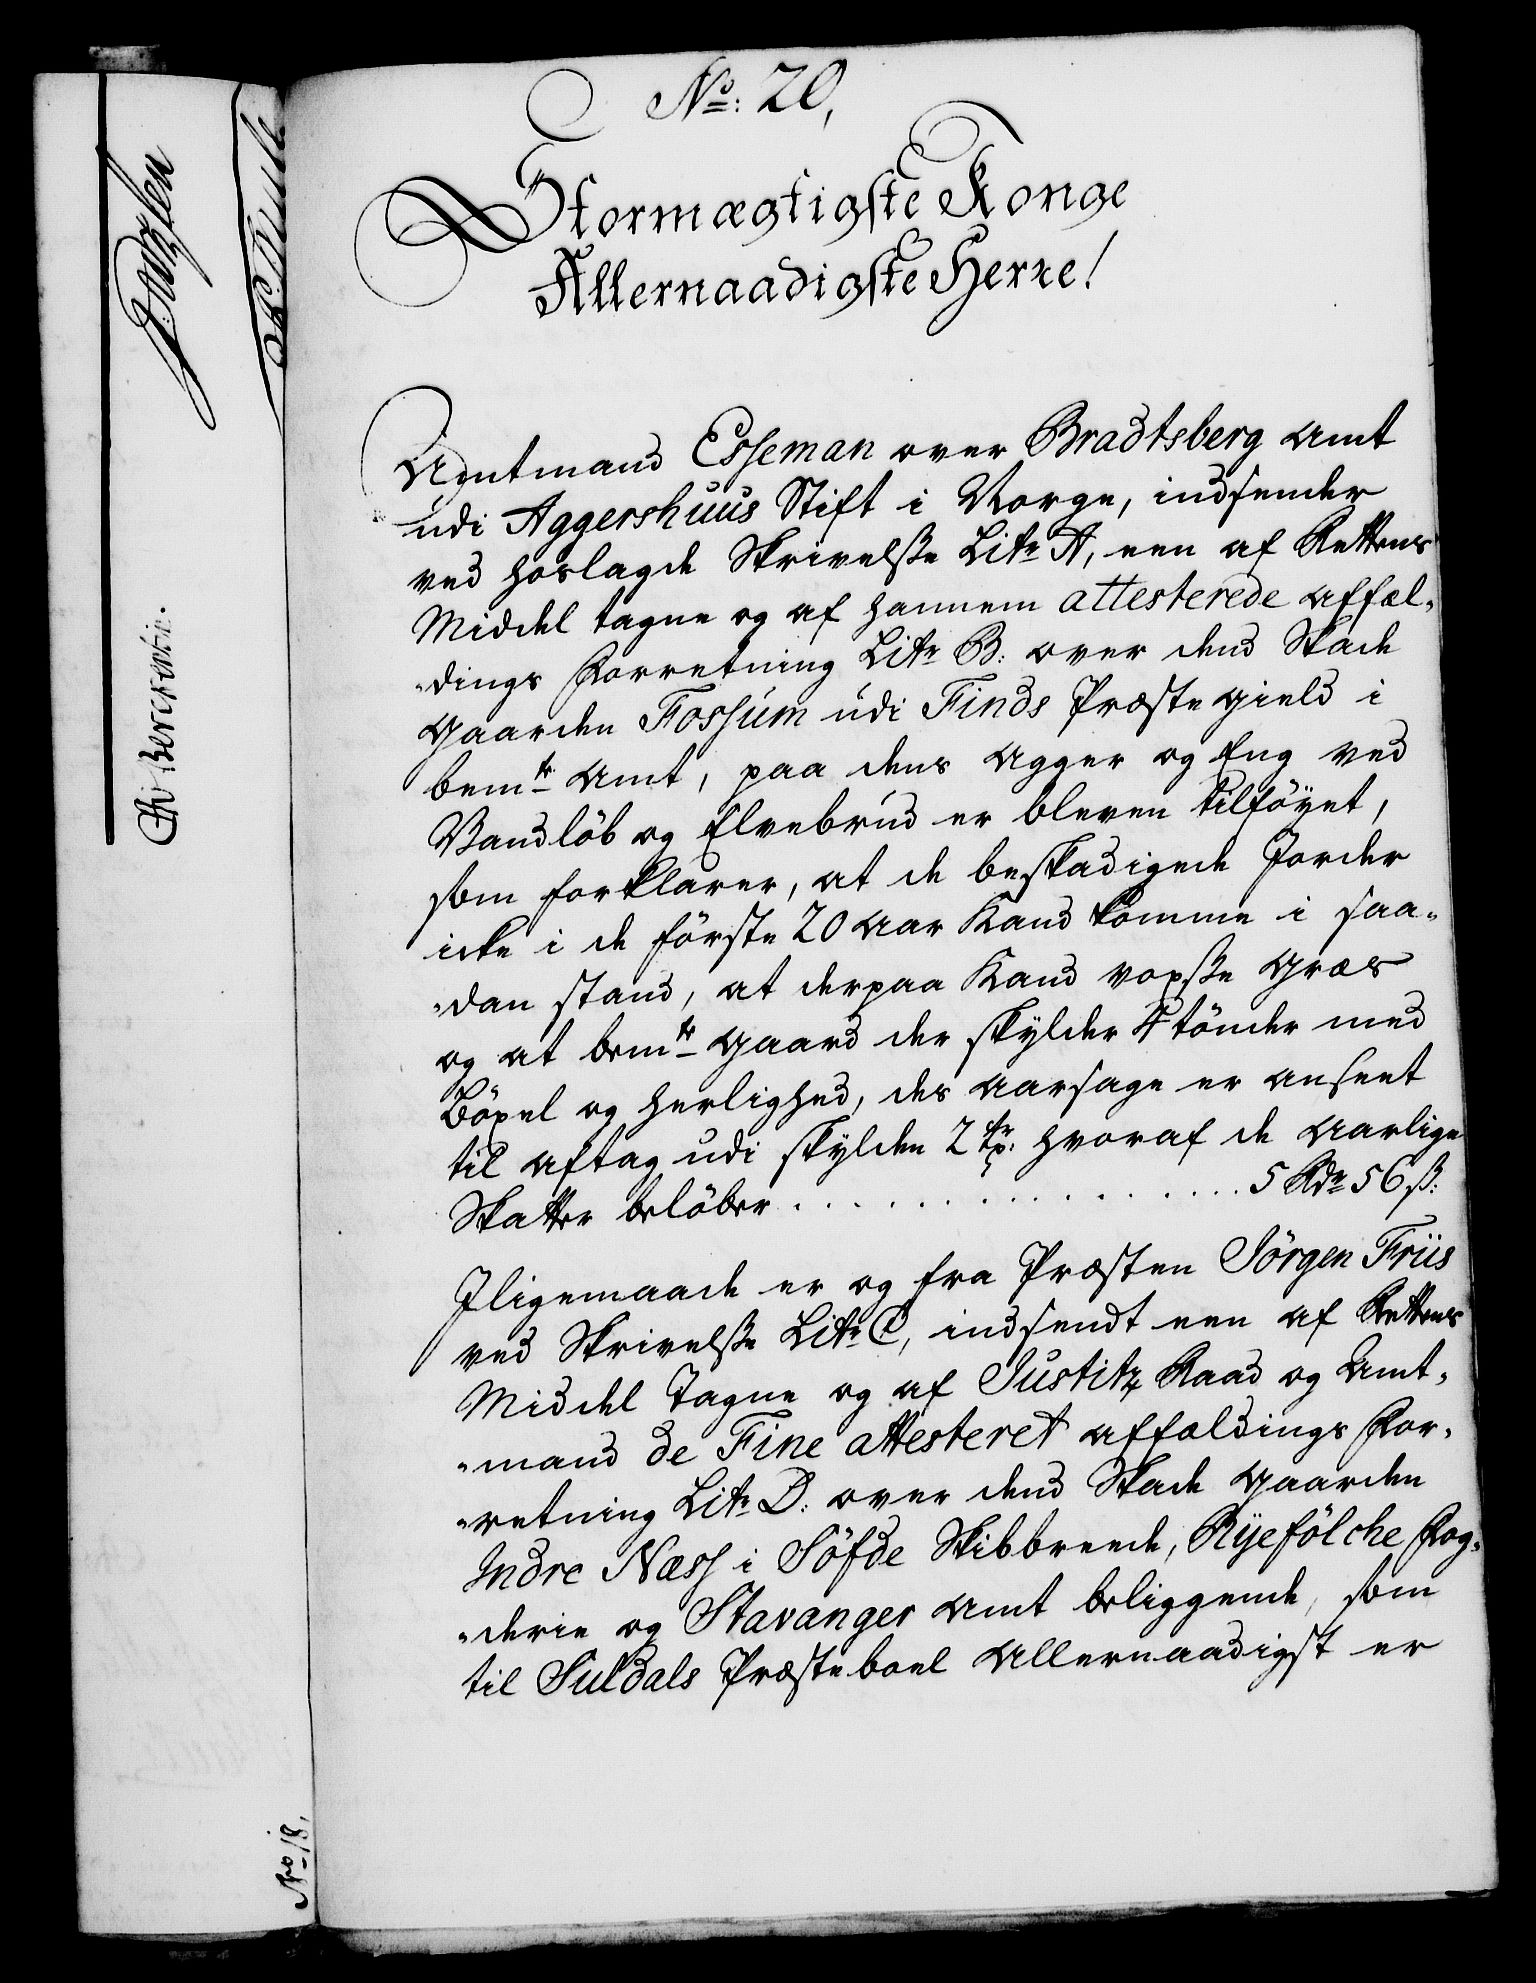 No: 20,
Stormægtigste Konge
Allernaadigste Herre!
Amtmand Esseman over Bradtsberg Amt
udi Aggershuus Stift i Norge, indsender
ved hoslagde Skrivelsse Litr A, een af Rettens
Middel tagne og af hannem attesterede affæl-
-dings Forretning Litr B: over dend Skade
Gaarden Fossum udi Finds Præste gield i
bemte Amt, paa dens Agger og Eng ved
Vandløb og Elvebrud er bleven tilføyet,
som forklarer, at de beskadigede Jorder
icke i de første 20 Aar Kand komme i saa-
-dan stand, at derpaa Kand voxsse Græs
og at bemte Gaard der skylder 4 tønder med
Bøxel og herlighed, des aarsage er anseet
til aftag udi skylden 2 hvoraf de aarlige
Skatter beløber . . . . . . . . . . . . . . 5 Rdr 56 ß:
Iligemaade er og fra Præsten Jørgen Friis
ved Skrivelsse Litr C, indsendt een af Rettens
Middel Tagne og af Justitz Raad og Amt-
-mand de Fine attesteret affældings For-
-retning Litr D: over dend Skade Gaarden
Indre Næss i Søfde Skibbreede, Ryefølche Fog-
-derie og Stavanger Amt beliggende, som
til Suldals Præsteboel Allernaadigst er
No 18,